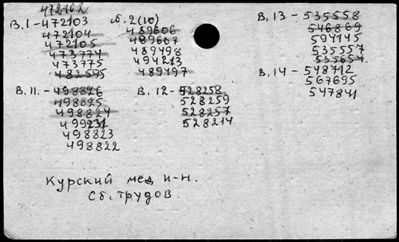 472102
В.I-472103
472104
472105
473774
473775
482595
сб.2(10)
489606
489607
489498
494213
489497
В.13-535558
546869
594145
535557
535654
В.14-548712
567695
547841
В.11.-498826
498825
498824
499231
498823
498822
В.12-528258
528259
528257
528214
Курский мед ин-н.
Сб. трудов.